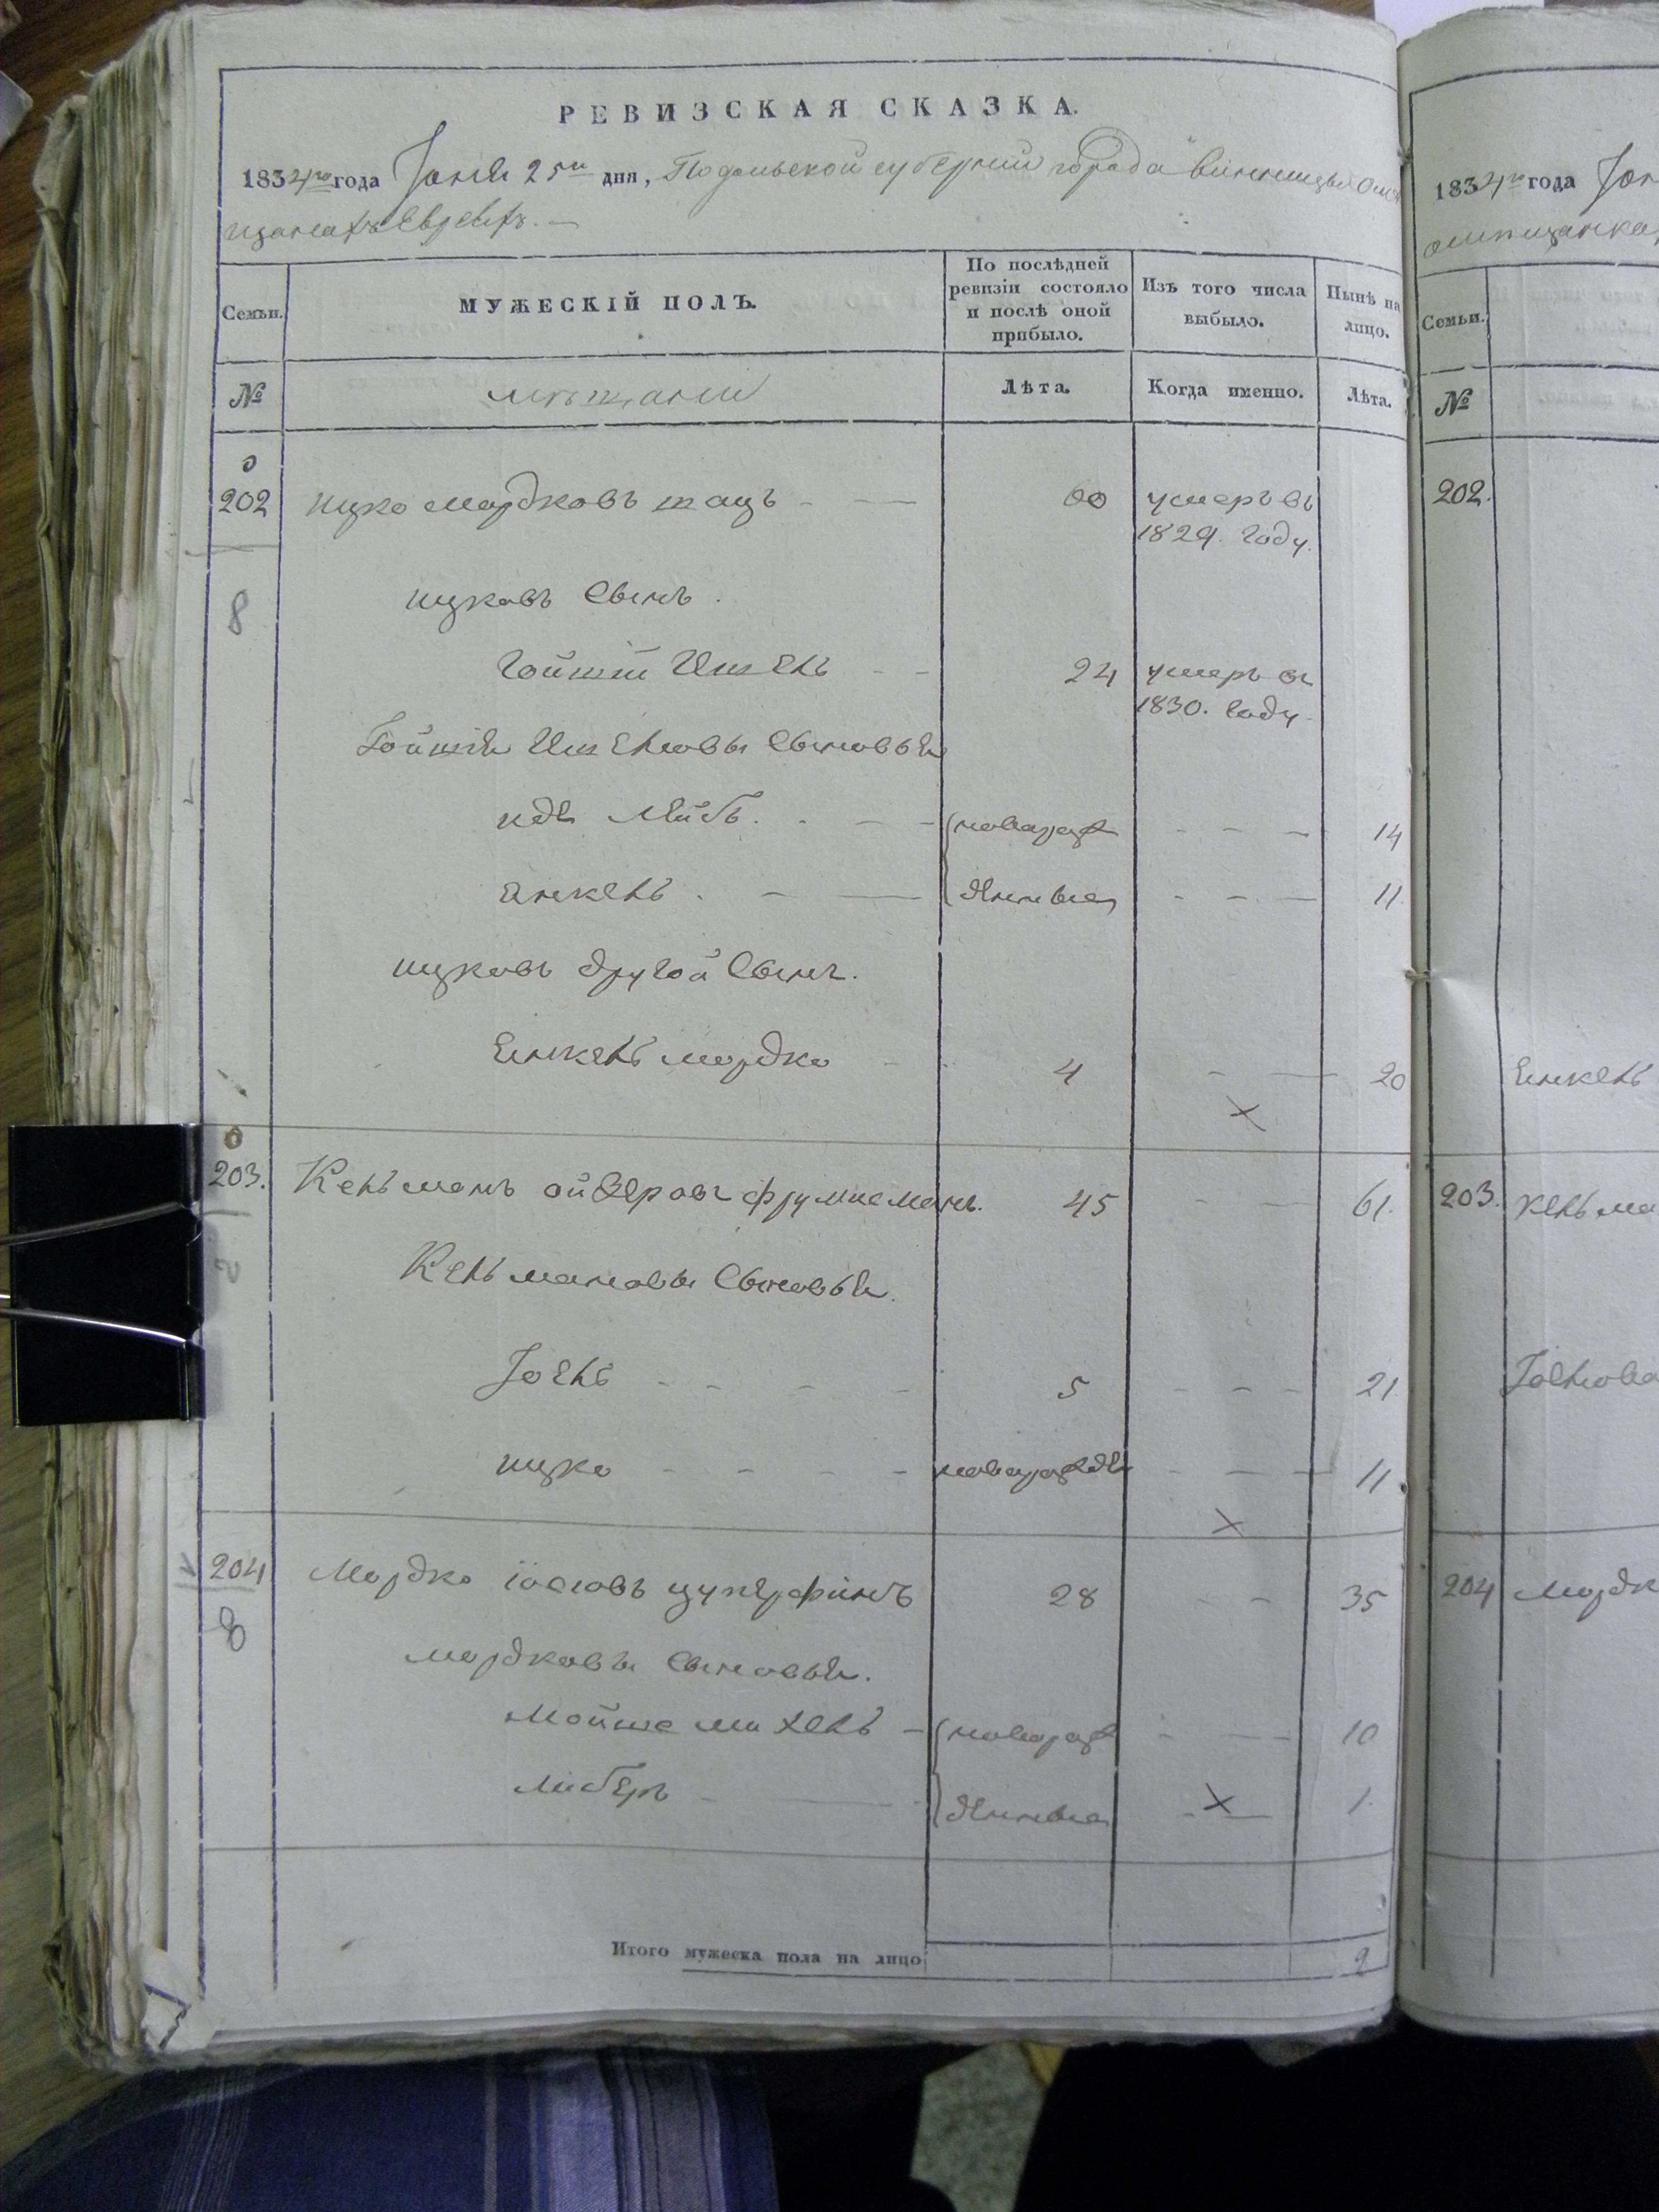 РЕВИЗСКАЯ СКАЗКА.
1834го года Іюня 25го дня, Подольской губерній города винницы О мѣ
щанахъ Евреяхъ. —
Семьи. МУЖЕСКІЙ ПОЛЪ. По послѣдней ревизіи состояло и послѣ оной прибыло. Изъ того числа выбыло. Нынѣ на лицо.
№ мѣщани Лѣта. Когда именно. Лѣта.
202 ицко мордковъ кацъ 60 умеръ въ
1829. году.
8 ицковъ Сынъ.
24 умеръ въ
1830. году.
Сыновья
Лейбъ. новорож 14
янкель. денные 11
ицковъ другой Сынъ.
Янкель мордко 4 20
203. Кельманъ ойзеровъ фрумкеманъ. 45 61.
2 Кельмановы Сыновья.
Іоель 5 21
ицко новорожде 11
204 Мордко іосіовъ 28 35
8 мордковы Сыновья.
Мойше михель новорож 10
Либеръ денные 1.
Итого мужеска пола на лицо 9
1834го года Іюн
Семьи.
№
202.
Янкель
203. кельма
Іоелова
204 Мордк